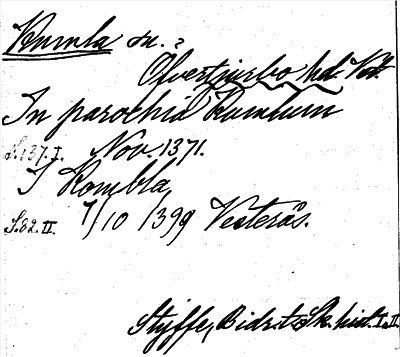 Kumla sn. ?
Övertjurbo hd. Vstm.
In parochia Rumlum
S. 137. I. Nov. 1371.
I Kombla
S. 82. II. 7/10 1399 Vesterås.
Styffe, Bidr. t. Sk. hist. I. II